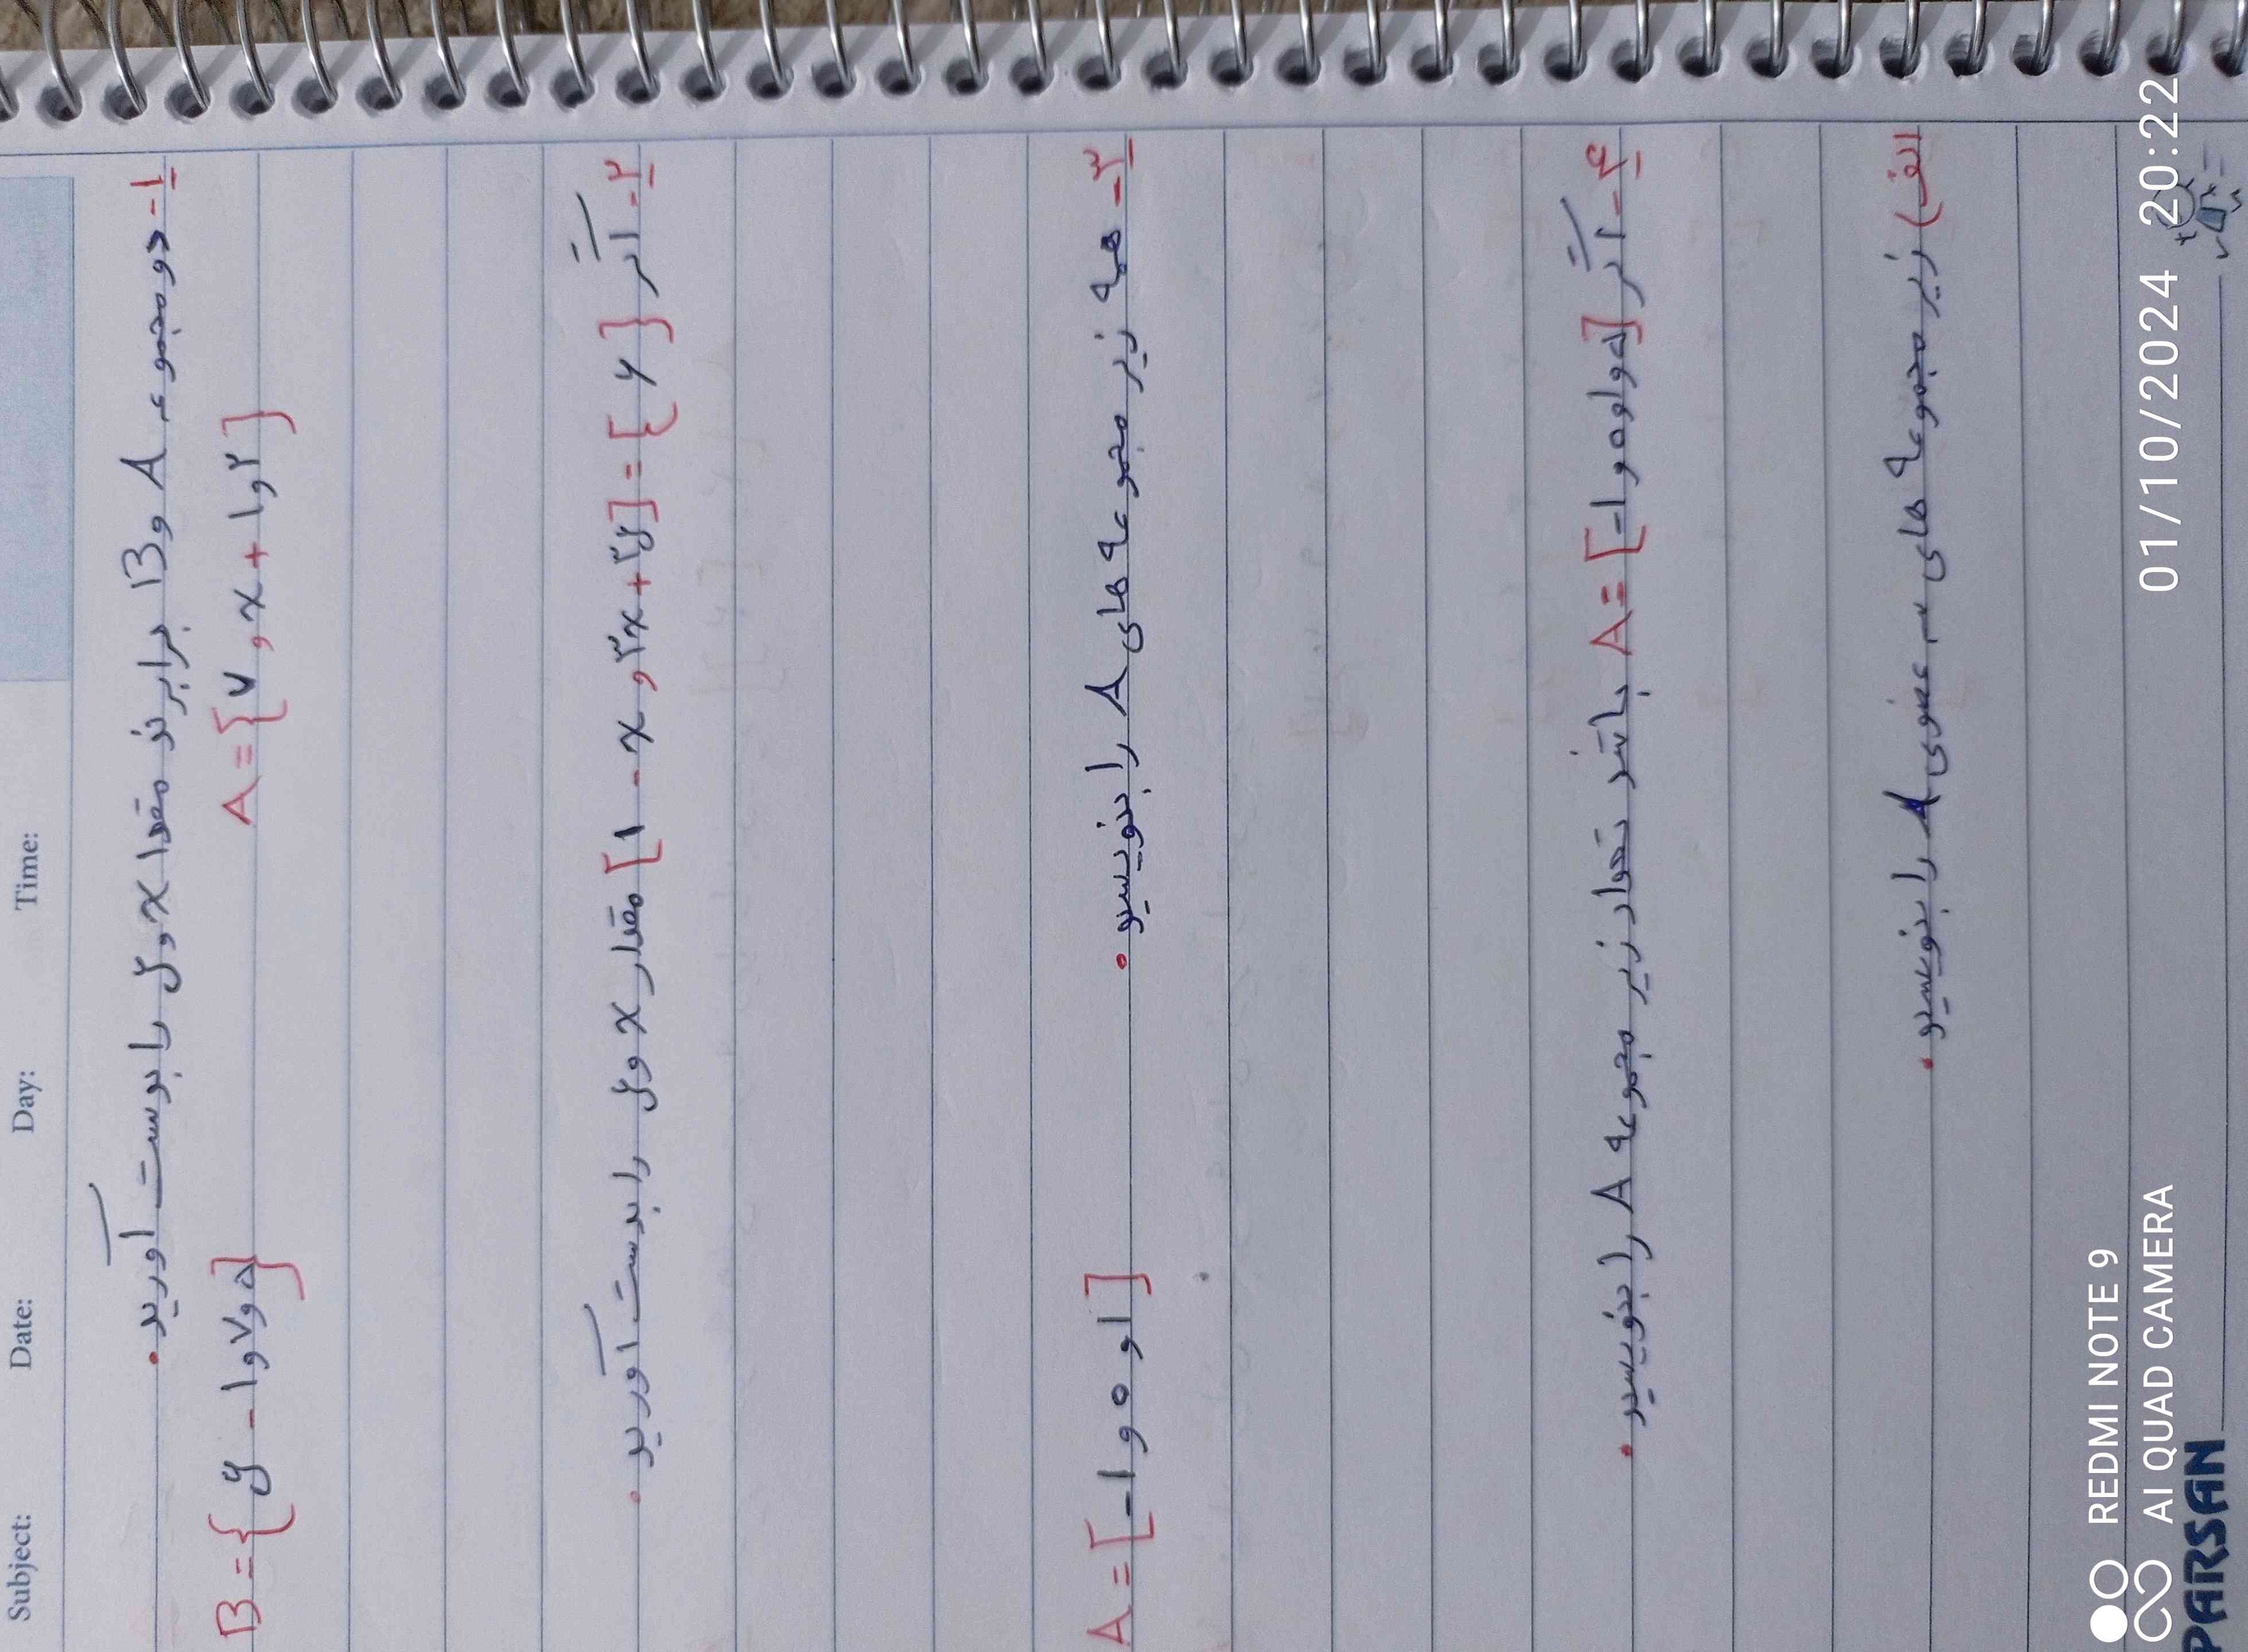 Subject: Date: Day: Time:
۱- دو مجموعه A و B برابرند مقدا x و y را بدست آورید.
A={۷, x+۱و۲} B={y-۱و۷و۵}
۲- اگر {۲}=[۱-x, ۳x+۲y] مقدار x و y را بدست آورید.
۳- همه زیر مجموعه های A را بنویسید. A=[-۱و۰و۱]
۴- اگر A=[-۱و۰و۱و۵] باشد تعداد زیر مجموعه A را بنویسید.
الف) زیر مجموعه های سه عضوی A را بنویسید.
PARSAN
REDMI NOTE 9
AI QUAD CAMERA
01/10/2024 20:22